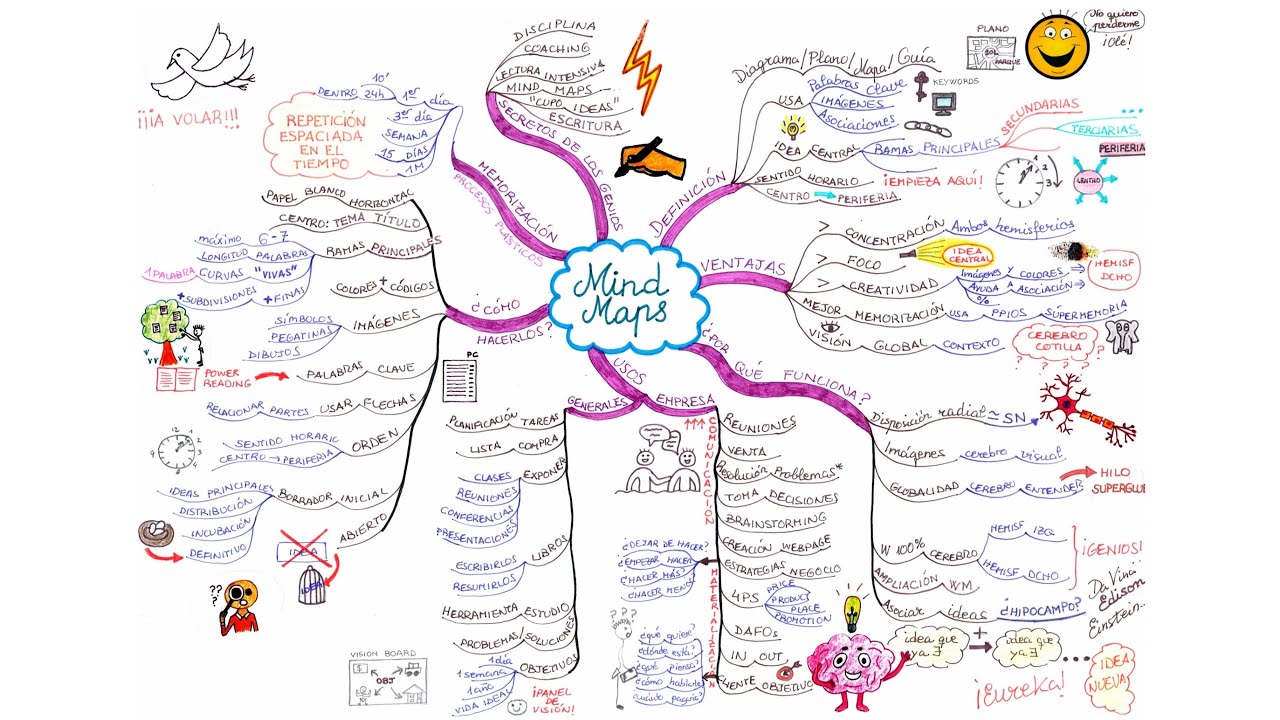 Mind
Maps
DEFINICIÓN
Diagrama/Plano/Mapa/Guía
PLANO
SOL
PARQUE
No quiero
perderme
¡Olé!
USA
Palabras clave
IMÁGENES
Asociaciones
KEYWORDS
IDEA CENTRAL
RAMAS PRINCIPALES
SECUNDARIAS
TERCIARIAS
...
PERIFERIA
SENTIDO HORARIO
¡EMPIEZA AQUÍ!
1
2
3
CENTRO
CENTRO → PERIFERIA
VENTAJAS
> CONCENTRACIÓN Ambos hemisferios
> FOCO
IDEA
CENTRAL
> CREATIVIDAD
Imágenes y COLORES ⇒
AYUDA A ASOCIACIÓN ⇒
%
HEMISF
DCHO
MEJOR MEMORIZACIÓN USA PPIOS SÚPERMEMORIA
VISIÓN GLOBAL CONTEXTO
CEREBRO
COTILLA
? ? ? ? ?
¿POR QUÉ FUNCIONA?
Disposición radial ≃ SN
Imágenes cerebro visual
GLOBALIDAD CEREBRO ENTENDER
HILO
SUPERGLUE
W 100% CEREBRO
HEMISF IZQ
HEMISF DCHO
¡GENIOS!
Da Vinci
Edison
Einstein...
AMPLIACIÓN WM
Asociar ideas ¿HIPOCAMPO?
idea que
ya ∃
+
idea que
ya ∃
...
IDEA
NUEVA
¡Eureka!
USOS
EMPRESA
↑↑↑ COMUNICACIÓN
MATERIALIZACIÓN
REUNIONES
VENTA
Resolución Problemas*
TOMA DECISIONES
BRAINSTORMING
CREACIÓN WEBPAGE
ESTRATEGIAS NEGOCIO
¿DEJAR DE HACER?
¿EMPEZAR HACER?
¿HACER MÁS?
¿HACER MENOS?
4PS
PRICE
PRODUCT
PLACE
PROMOTION
DAFOs
IN OUT
CLIENTE OBJETIVO
???
¿qué quiere?
¿dónde está?
¿qué piensa?
¿cómo hablarle?
¿cuánto pagaría?
GENERALES
PLANIFICACIÓN TAREAS
LISTA COMPRA
EXPONER
CLASES
REUNIONES
CONFERENCIAS
PRESENTACIONES
LIBROS
ESCRIBIRLOS
RESUMIRLOS
HERRAMIENTA ESTUDIO
PROBLEMAS/SOLUCIONES
OBJETIVOS
1 día
1 semana
1 año
VIDA IDEAL
¡PANEL
DE
VISIÓN!
VISION BOARD
$
OBJ
¿CÓMO
HACERLOS?
PAPEL BLANCO HORIZONTAL
CENTRO: TEMA TÍTULO
RAMAS PRINCIPALES
máximo 6-7
LONGITUD PALABRAS
1 PALABRA
CURVAS "VIVAS"
+SUBDIVISIONES +FINAS
COLORES + CÓDIGOS
IMÁGENES
SÍMBOLOS
PEGATINAS
DIBUJOS
PALABRAS CLAVE
POWER
READING
PC
USAR FLECHAS
RELACIONAR PARTES
ORDEN
SENTIDO HORARIO
CENTRO → PERIFERIA
12
1
2
3
4
BORRADOR INICIAL
IDEAS PRINCIPALES
DISTRIBUCIÓN
INCUBACIÓN
DEFINITIVO
ABIERTO
IDEA
IDEA
???
MEMORIZACIÓN
PROCESOS PLÁSTICOS
10'
DENTRO 24h 1er día
3er día
SEMANA
15 DÍAS
1M
REPETICIÓN
ESPACIADA
EN EL
TIEMPO
¡¡¡A VOLAR!!!
SECRETOS DE LOS GENIOS
DISCIPLINA
COACHING
LECTURA INTENSIVA
MIND MAPS
"CUPO IDEAS"
ESCRITURA